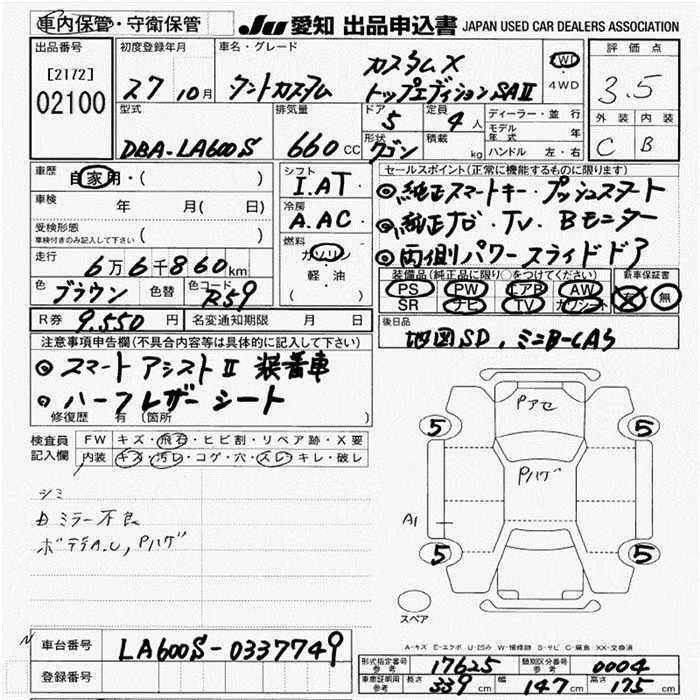 車内保管・守衛保管 JU 愛知 出品申込書 JAPAN USED CAR DEALERS ASSOCIATION
出品番号 [2172] 02100
初度登録年月 27 10月
車名・グレード タントカスタム カスタムX トップエディションSAⅡ
2WD・4WD
評価点 3.5
外装 C 内装 B
型式 DBA-LA600S
排気量 660 CC
ドア 5 定員 4人
形状 ワゴン 積載 kg
ディーラー・並行
モデル年式 年
ハンドル 左・右
車歴 自家用・( )
車検 年 月( 日)
受検形態 車検付きのみ記入して下さい ( )
走行 6万6千860km
色 ブラウン 色替 色コード R59
シフト I.AT
冷房 A.AC
燃料 ガソリン・軽油 ( )
セールスポイント(正常に機能するものに限ります)
◎純正スマートキー・プッシュスタート
◎純正ナビ・TV・Bモニター
◎両側パワースライドドア
装備品(純正品に限り○をつけてください) 新車保証書
PS PW エアB AW 有 無
SR ナビ TV カワシート
R券 9.550円 名変通知期限 月 日
後日品 地図SD, ミニB-CAS
注意事項申告欄(不具合内容等は具体的に記入して下さい)
◎スマートアシストⅡ 装着車
◎ハーフレザーシート
修復歴 有(箇所 )
検査員記入欄 FW キズ・飛石・ヒビ割・リペア跡・X要
内装 キズ・汚レ・コゲ・穴・スレ・キレ・破レ
シミ
Dミラー不良
ボデイA.U, Pハゲ
Pアセ
Pハゲ
5 5
A1
5 5
スペア
A-キズ E-エクボ U-凹み W-補修跡 S-サビ C-腐食 XX-交換済
車台番号 LA600S-0337749
登録番号
形式指定番号 参考 17625 類別区分番号 参考 0004
車庫証明用 参考 長さ 339cm 幅 147cm 高さ 175cm